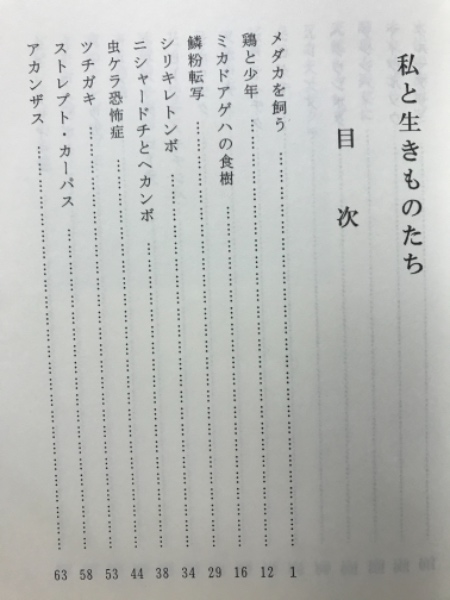 私と生きものたち
目次
メダカを飼う……………………1
鶏と少年……………………12
ミカドアゲハの食樹……………………16
鱗粉転写……………………29
シリキレトンボ……………………34
ニシャードチとヘカンボ……………………38
虫ケラ恐怖症……………………44
ツチガキ……………………53
ストレプト・カーパス……………………58
アカンザス……………………63